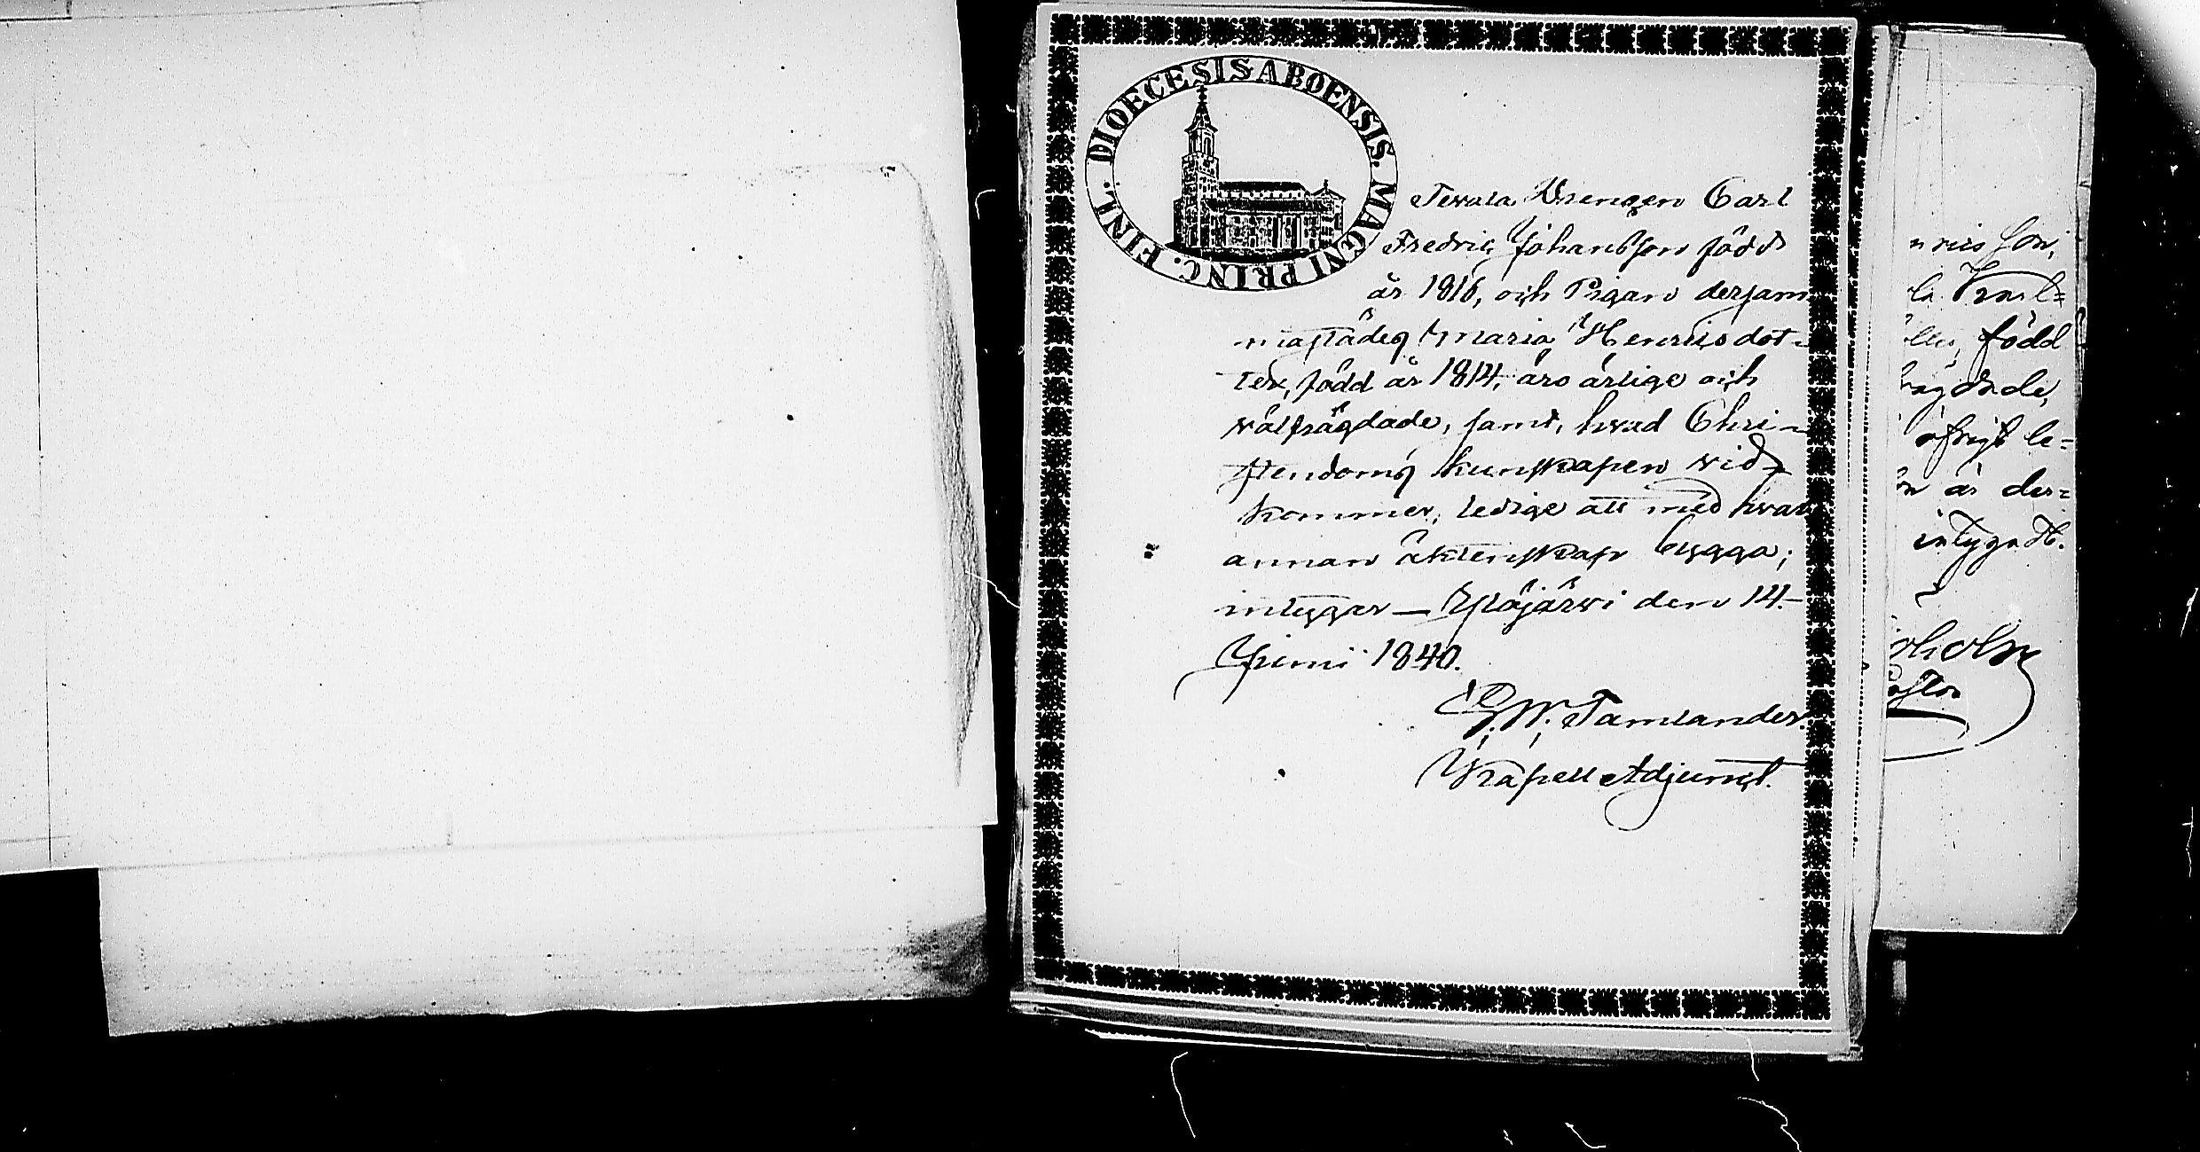 DIOECESIS ABOENSIS. MAGNI PRINC. FINL.
Tevala Drengen Carl
Fredric Johansson född
år 1816, och Pigan dersam
mastädes Maria Henricsdot-
ter, född år 1814, äro ärlige och
välfrägdade, samt, hvad Chri-
stendoms kunskapen vid-
kommer, ledige att med hvar
annan äktenskap bygga;
intygar — Ylöjärvi den 14.
Junii 1840.
G. W. Tamlander.
Kapell Adjunct.
son,
född
öfrigt le=
är der=
intygadt.